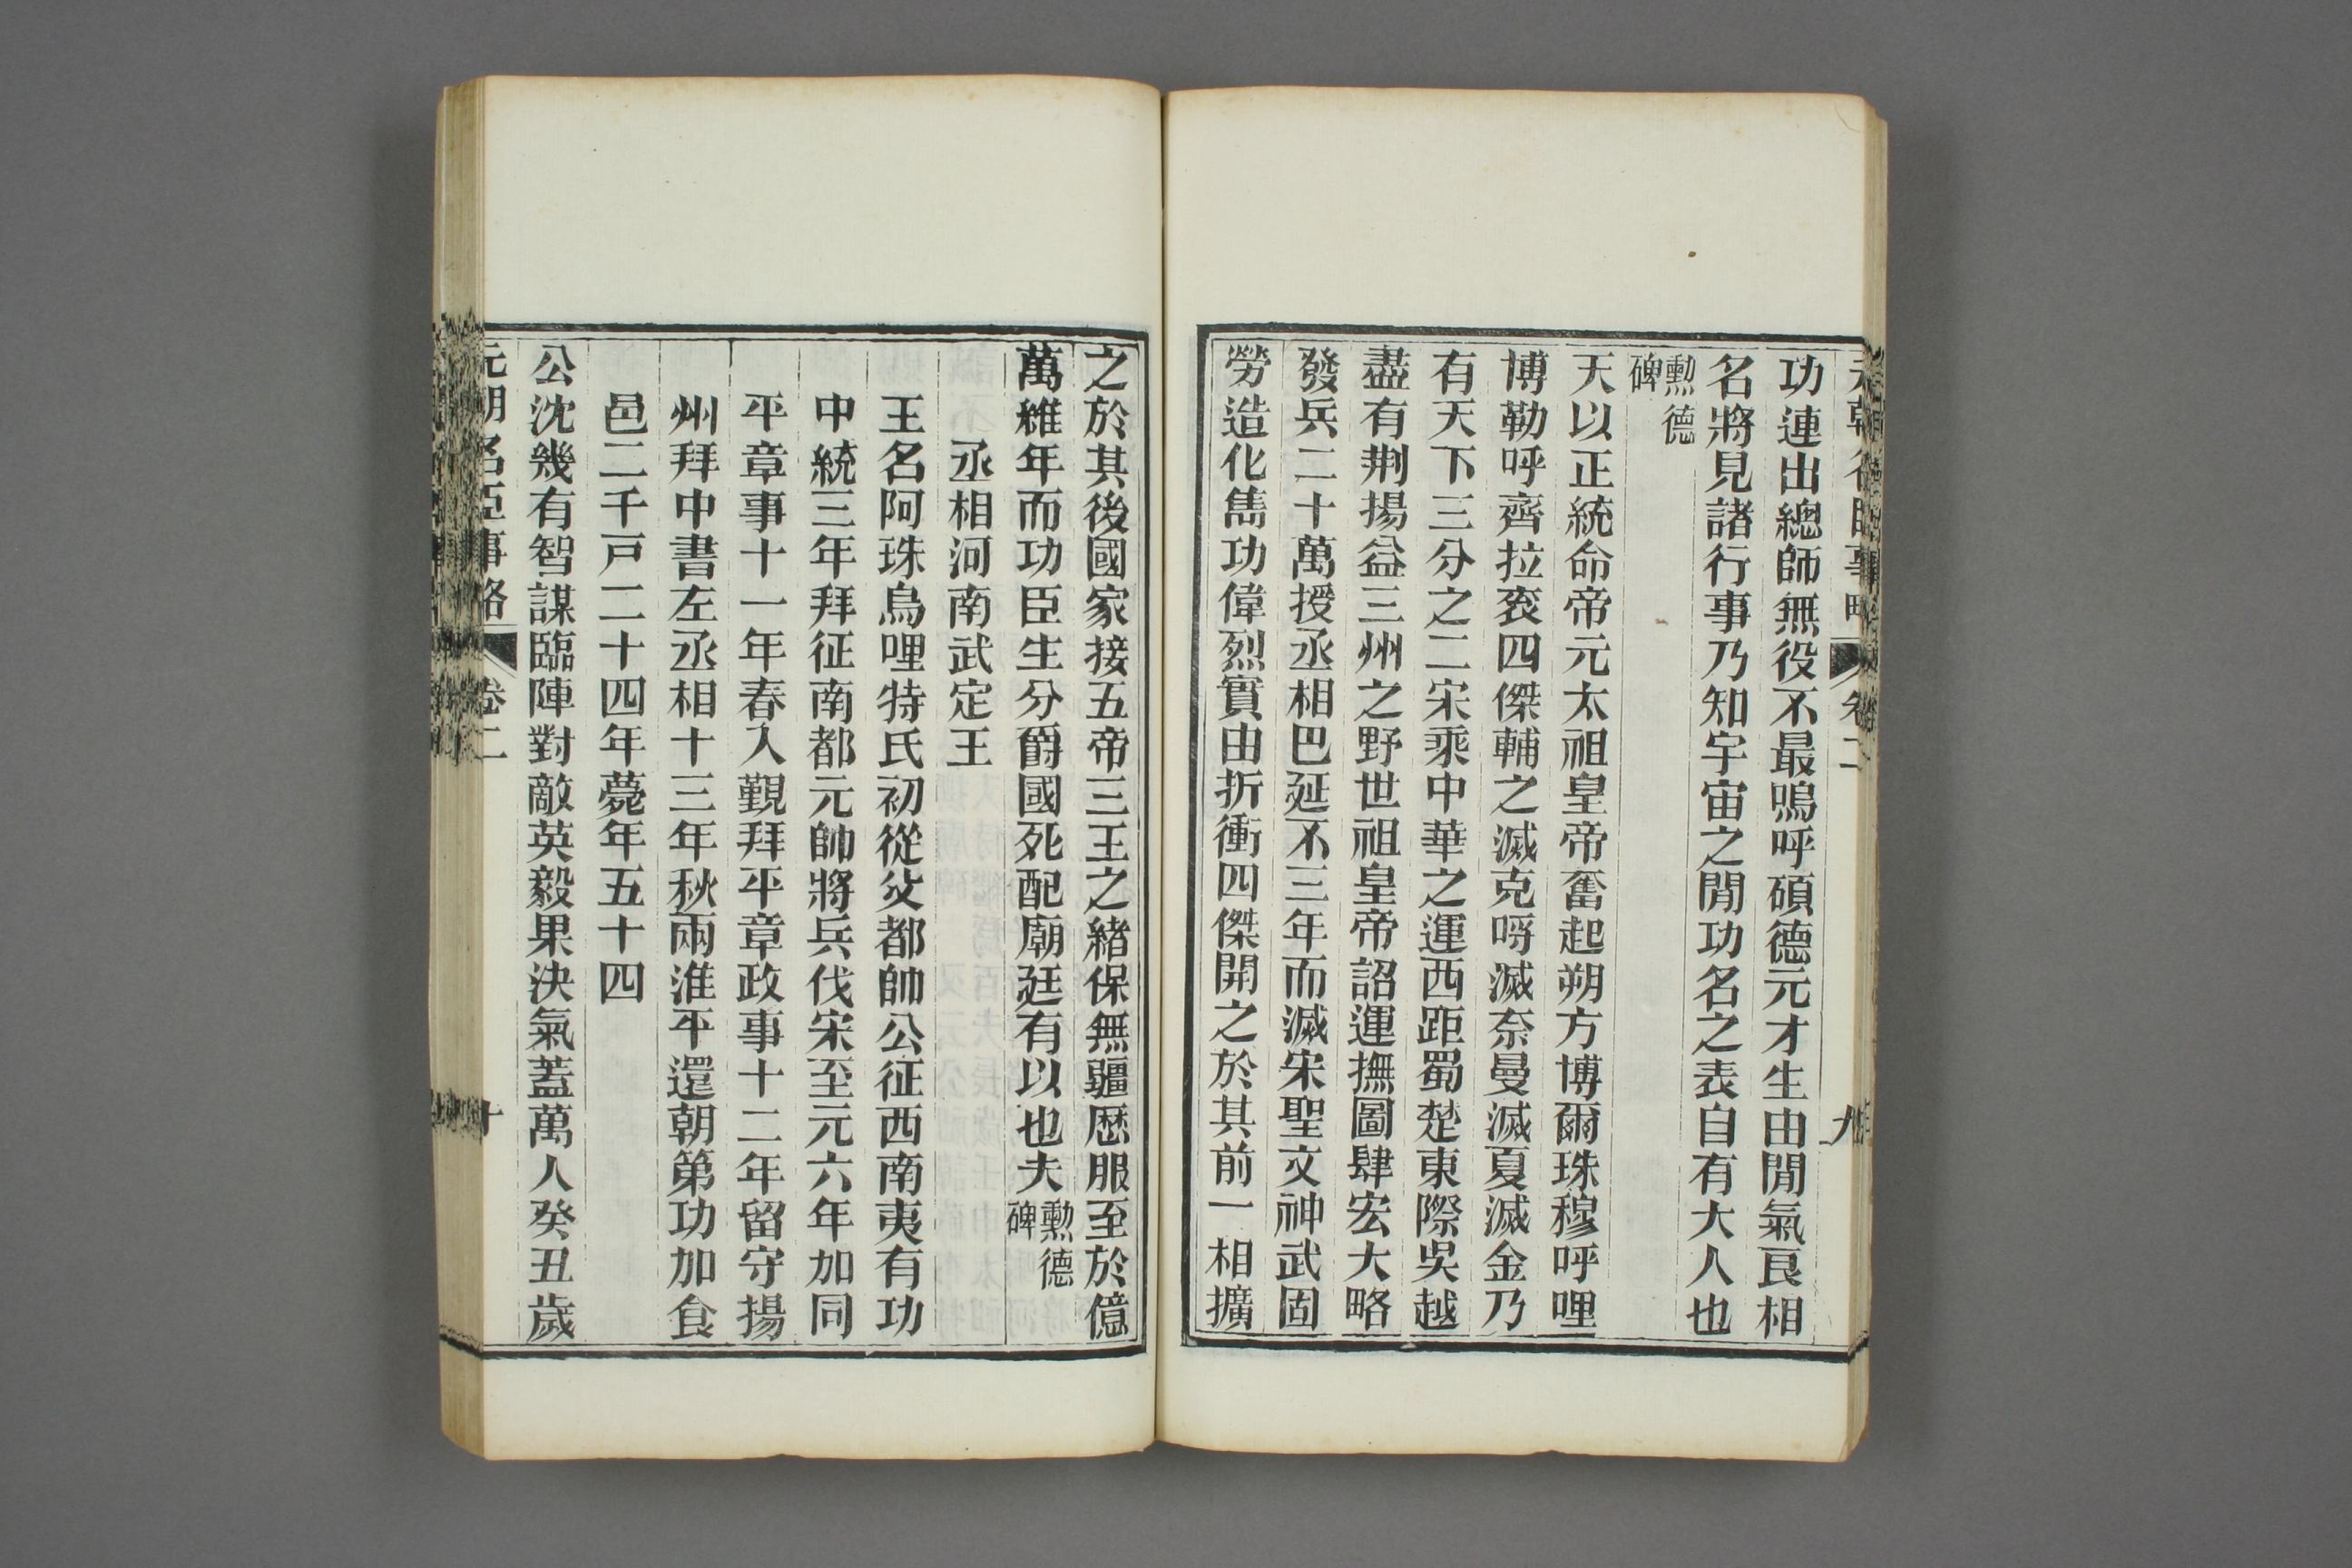 元朝名臣事略 卷二 九
功連出總師無役不最嗚呼碩德元才生由閒氣良相
名將見諸行事乃知宇宙之閒功名之表自有大人也
勲德
碑
天以正統命帝元太祖皇帝奮起朔方博爾珠穆呼哩
博勒呼齊拉衮四傑輔之滅克呼滅奈曼滅夏滅金乃
有天下三分之二宋乘中華之運西距蜀楚東際吳越
盡有荆揚益三州之野世祖皇帝詔運撫圖肆宏大略
發兵二十萬授丞相巴延不三年而滅宋聖文神武固
勞造化雋功偉烈實由折衝四傑開之於其前一相擴
之於其後國家接五帝三王之緒保無疆歴服至於億
萬維年而功臣生分爵國死配廟廷有以也夫勲德
碑
丞相河南武定王
王名阿珠烏哩特氏初從父都帥公征西南夷有功
中統三年拜征南都元帥將兵伐宋至元六年加同
平章事十一年春入覲拜平章政事十二年留守揚
州拜中書左丞相十三年秋兩淮平還朝第功加食
邑二千戸二十四年薨年五十四
公沈幾有智謀臨陣對敵英毅果決氣蓋萬人癸丑歲
元朝名臣事略 卷二 十